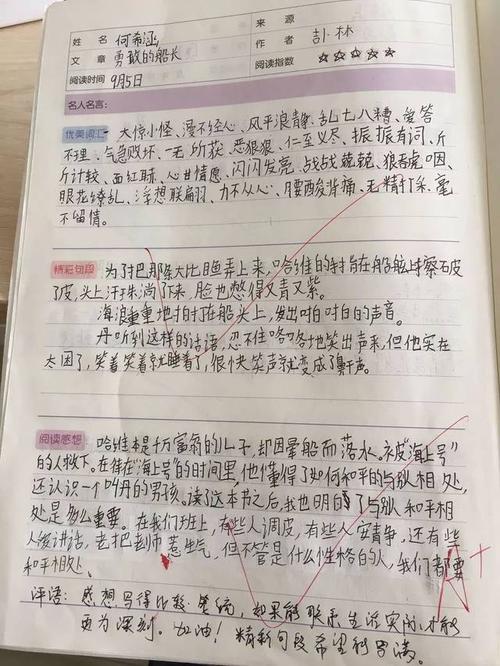 姓名 何希涵 来源
文章 勇敢的船长 作者 彭林
阅读时间 9月5日 阅读指数 ☆☆☆☆☆
名人名言：
优美词汇 大惊小怪、漫不经心、风平浪静、乱七八糟、爱答
不理、气急败坏、一无所获、恶狠狠、仁至义尽、振振有词、斤
斤计较、面红耳赤、心甘情愿、闪闪发亮、战战兢兢、狼吞虎咽、
眼花缭乱、浮想联翩、力不从心、腰酸背痛、无精打采、毫
不留情。
精彩句段 为了把那条大比目鱼弄上来，哈维的肘在船舷上擦破皮
了皮，头上汗珠淌下来，脸也憋得又青又紫。
海浪重重地拍打在船头上，发出啪啪的声音。
丹听到这样的话语，忍不住咯咯地笑出声来，但他实在
太困了，笑着笑着就睡着了，很快笑声就变成了鼾声。
阅读感想 哈维本是千万富翁的儿子，却因晕船而落水。被“海上号”
的人救下。在待在“海上号”的时间里，他懂得了如何和平的与别人相处，
还认识一个叫丹的男孩。读了这本书之后，我也明白了与别人和平相
处是多么重要。在我们班上，有些人调皮，有些人安静，还有些
人爱讲话，老把老师惹生气，但不管是什么性格的人，我们都要
和平相处、
评语：感想写得比较笼统，如果能联系生活实际，才能
更为深刻。加油！精彩句段希望能写满。